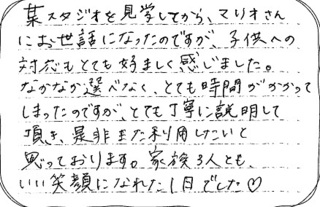 某スタジオを見学してから、マリオさん
にお世話になったのですが、子供への
対応もとても好ましく感じました。
なかなか選べなく、とても時間がかかって
しまったのですが、とても丁寧に説明して
頂き、是非また利用したいと
思っております。家族3人とも、
いい笑顔になれた1日でした♡